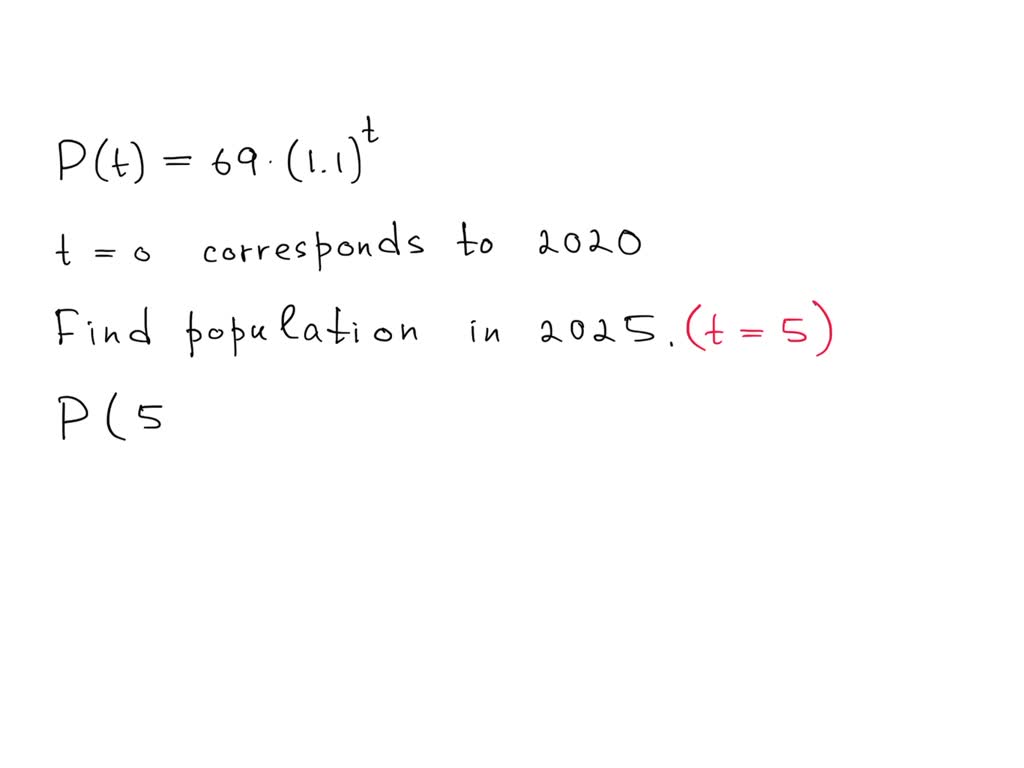 P(t) = 69·(1.1)^t
t = 0 corresponds to 2020
Find population in 2025. (t = 5)
P(5